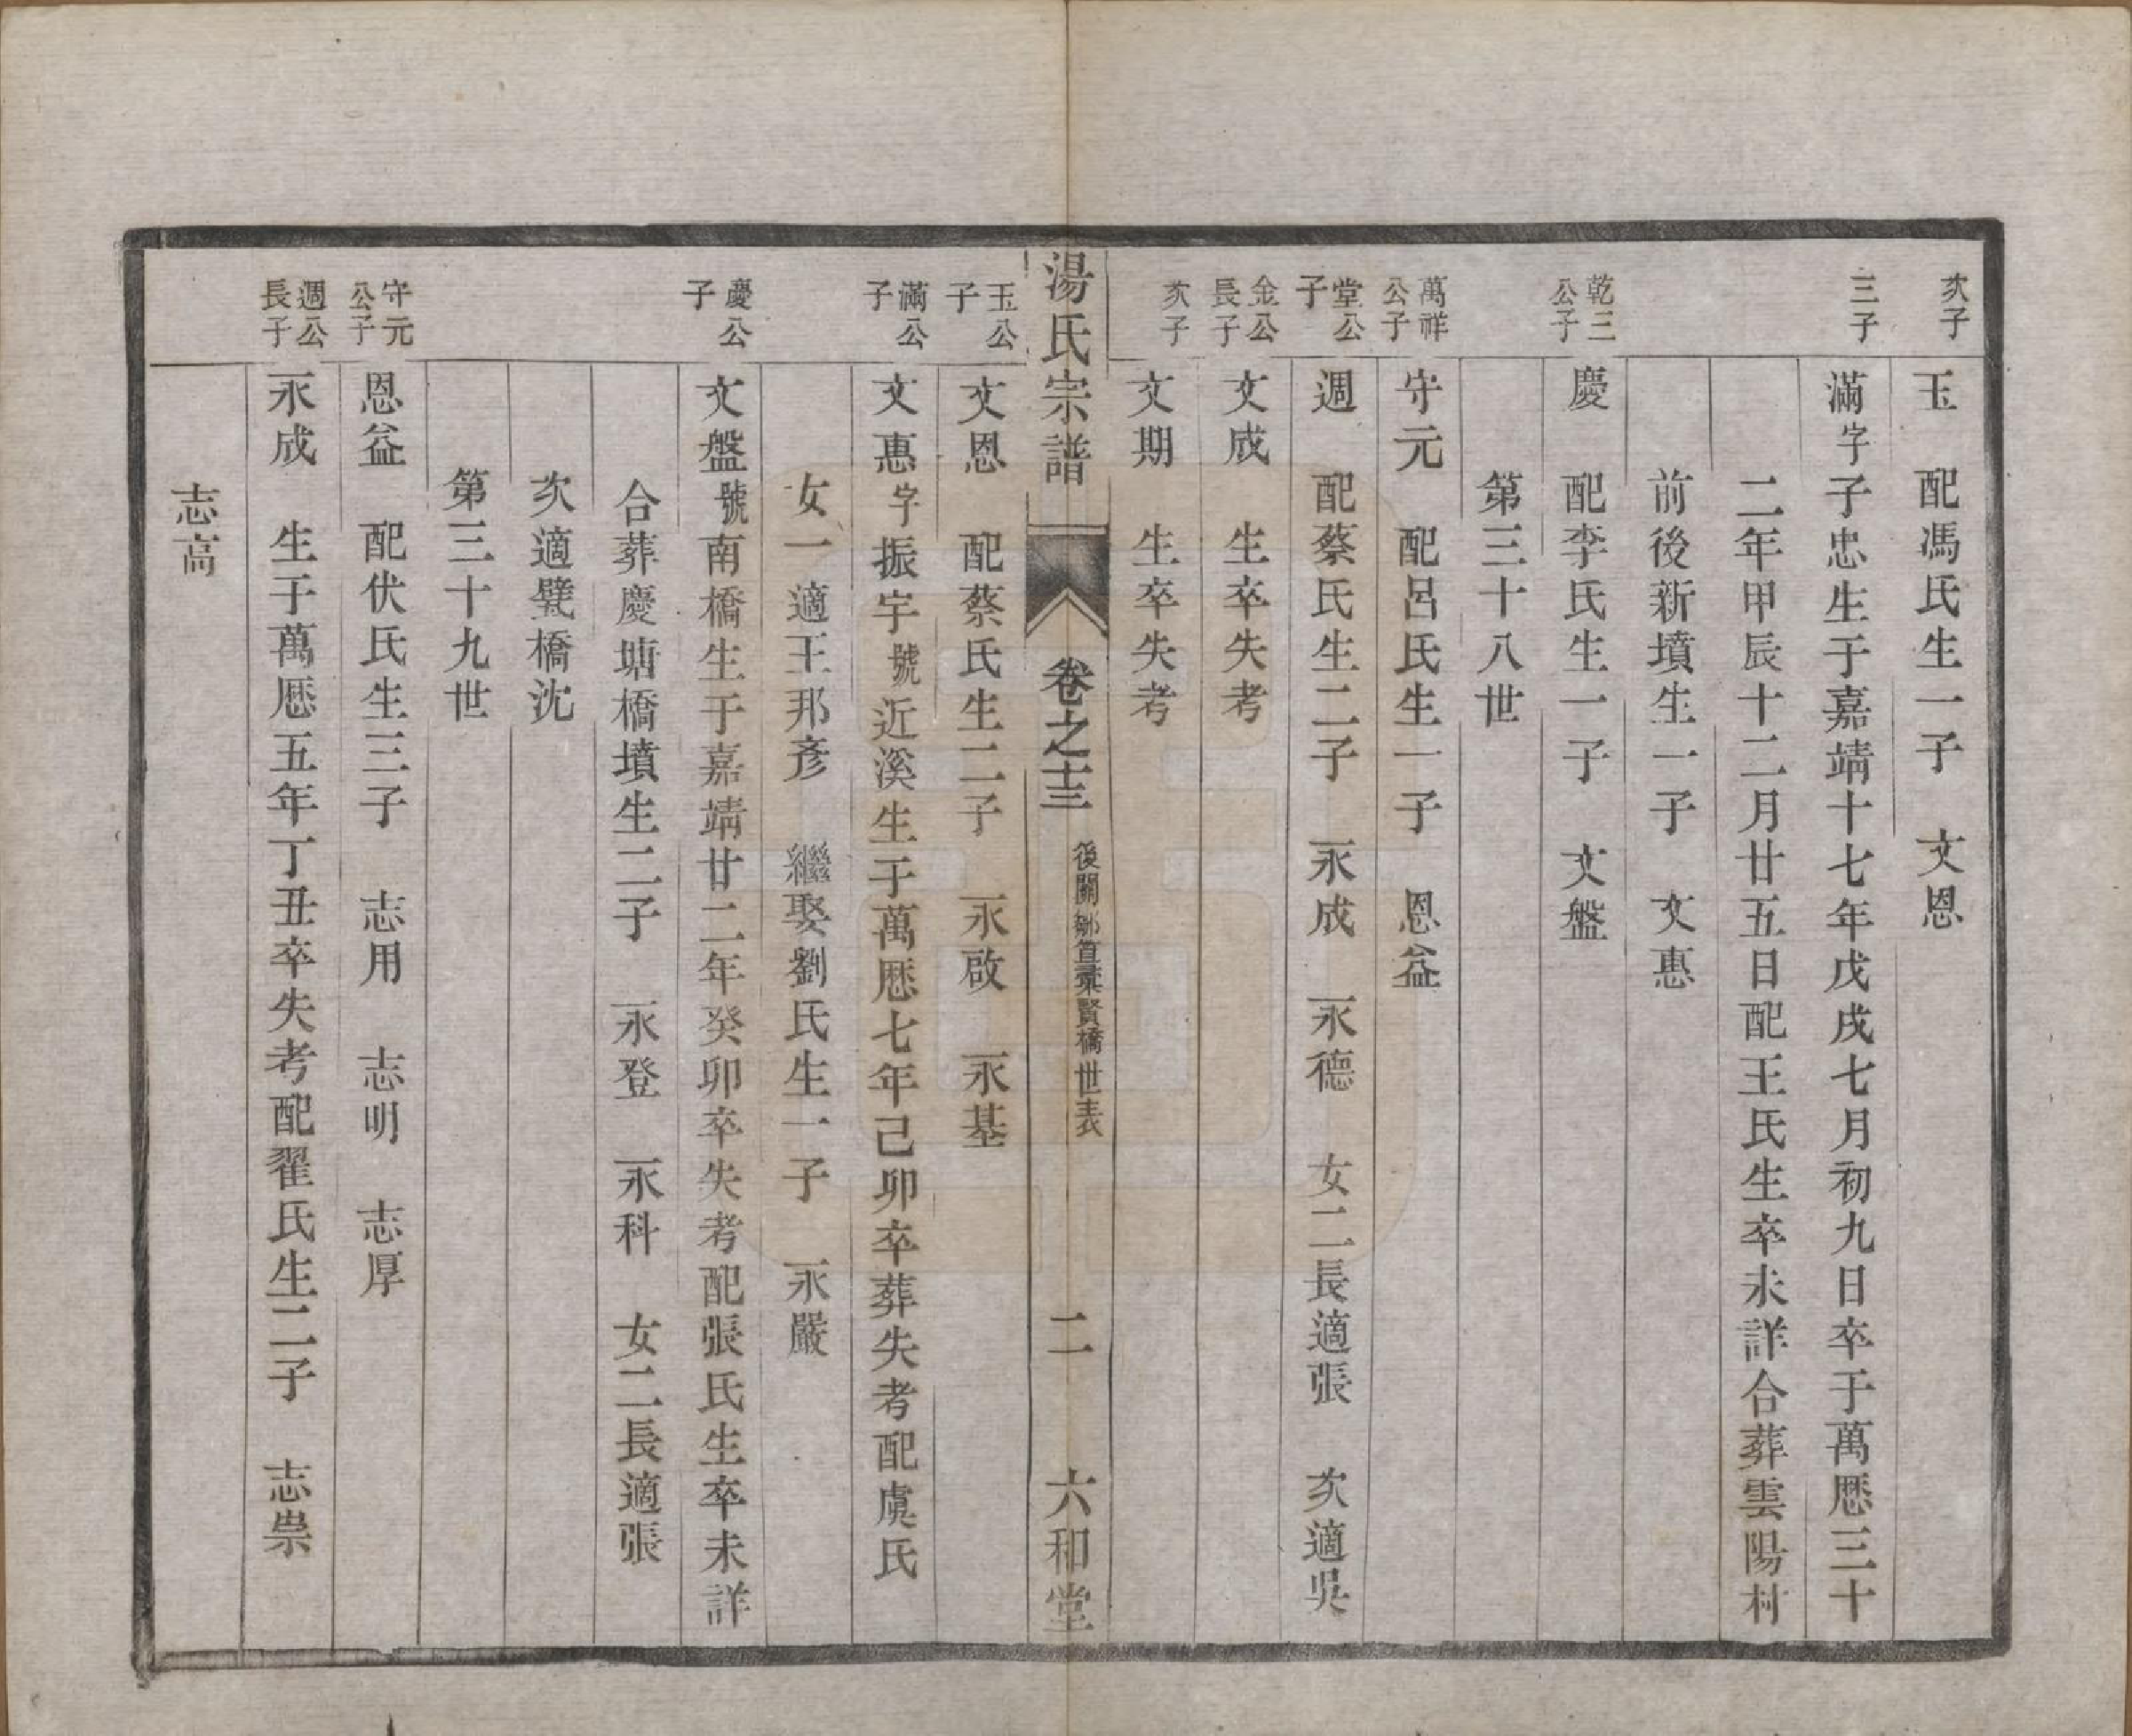 次子
玉　配馮氏生一子　文恩
三子
滿字子忠生于嘉靖十七年戊戌七月初九日卒于萬厯三十
二年甲辰十二月廿五日配王氏生卒未詳合葬雲陽村
前後新墳生一子　文惠
乾三公子
慶　配李氏生一子　文盤
第三十八世
萬祥公子
守元　配呂氏生一子　恩益
堂公子
週　配蔡氏生二子　永成　永德　女二長適張　次適吳
金公長子
文成　生卒失考
次子
文期　生卒失考
湯氏宗譜　卷之十三　後關鄒笪棠賢橋世表　二　六和堂
玉公子
文恩　配蔡氏生二子　永啟　永基
滿公子
文惠字振宇號近溪生于萬厯七年己卯卒葬失考配虞氏
女一適王邦彥　繼娶劉氏生一子　永嚴
慶公子
文盤號南橋生于嘉靖廿二年癸卯卒失考配張氏生卒未詳
合葬慶塘橋墳生二子　永登　永科　女二長適張
次適甓橋沈
第三十九世
守元公子
恩益　配伏氏生三子　志用　志明　志厚
週公長子
永成　生于萬厯五年丁丑卒失考配翟氏生二子　志崇
志高